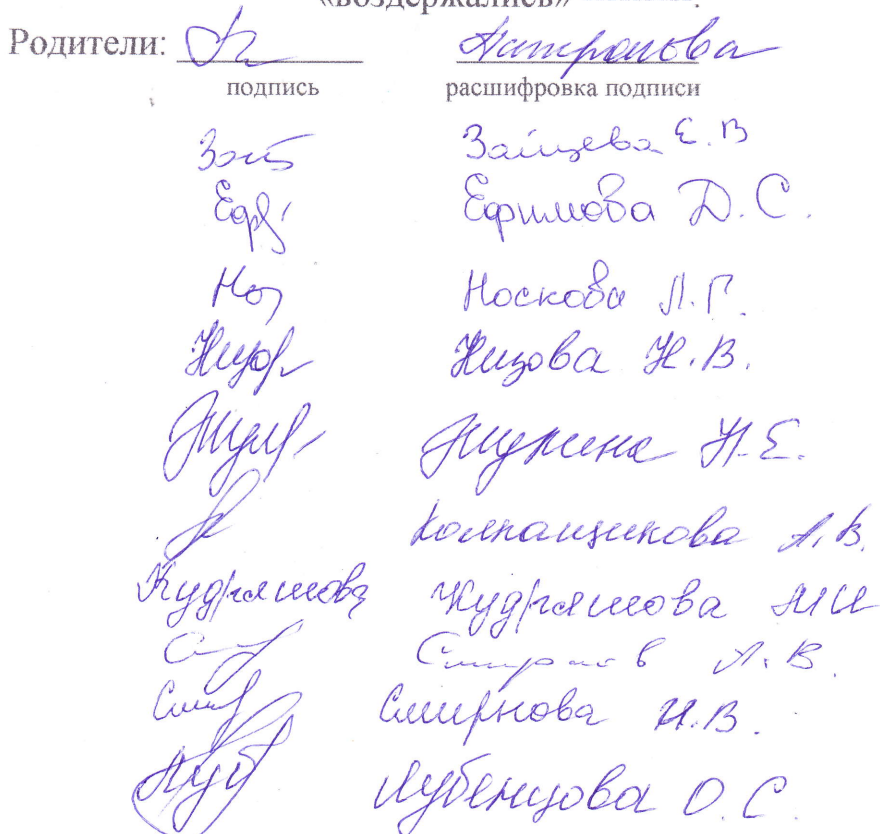 «воздержались»
Родители: Антропова
подпись расшифровка подписи
Зайцева Е.В
Ефимова Д.С.
Носкова Л.Г.
Низова Н.В.
Н.Е.
Колпащикова А.В.
Кудряшова Кудряшова МИ
Смирнов А.В.
Смирнова И.В.
Лубенцова О.С